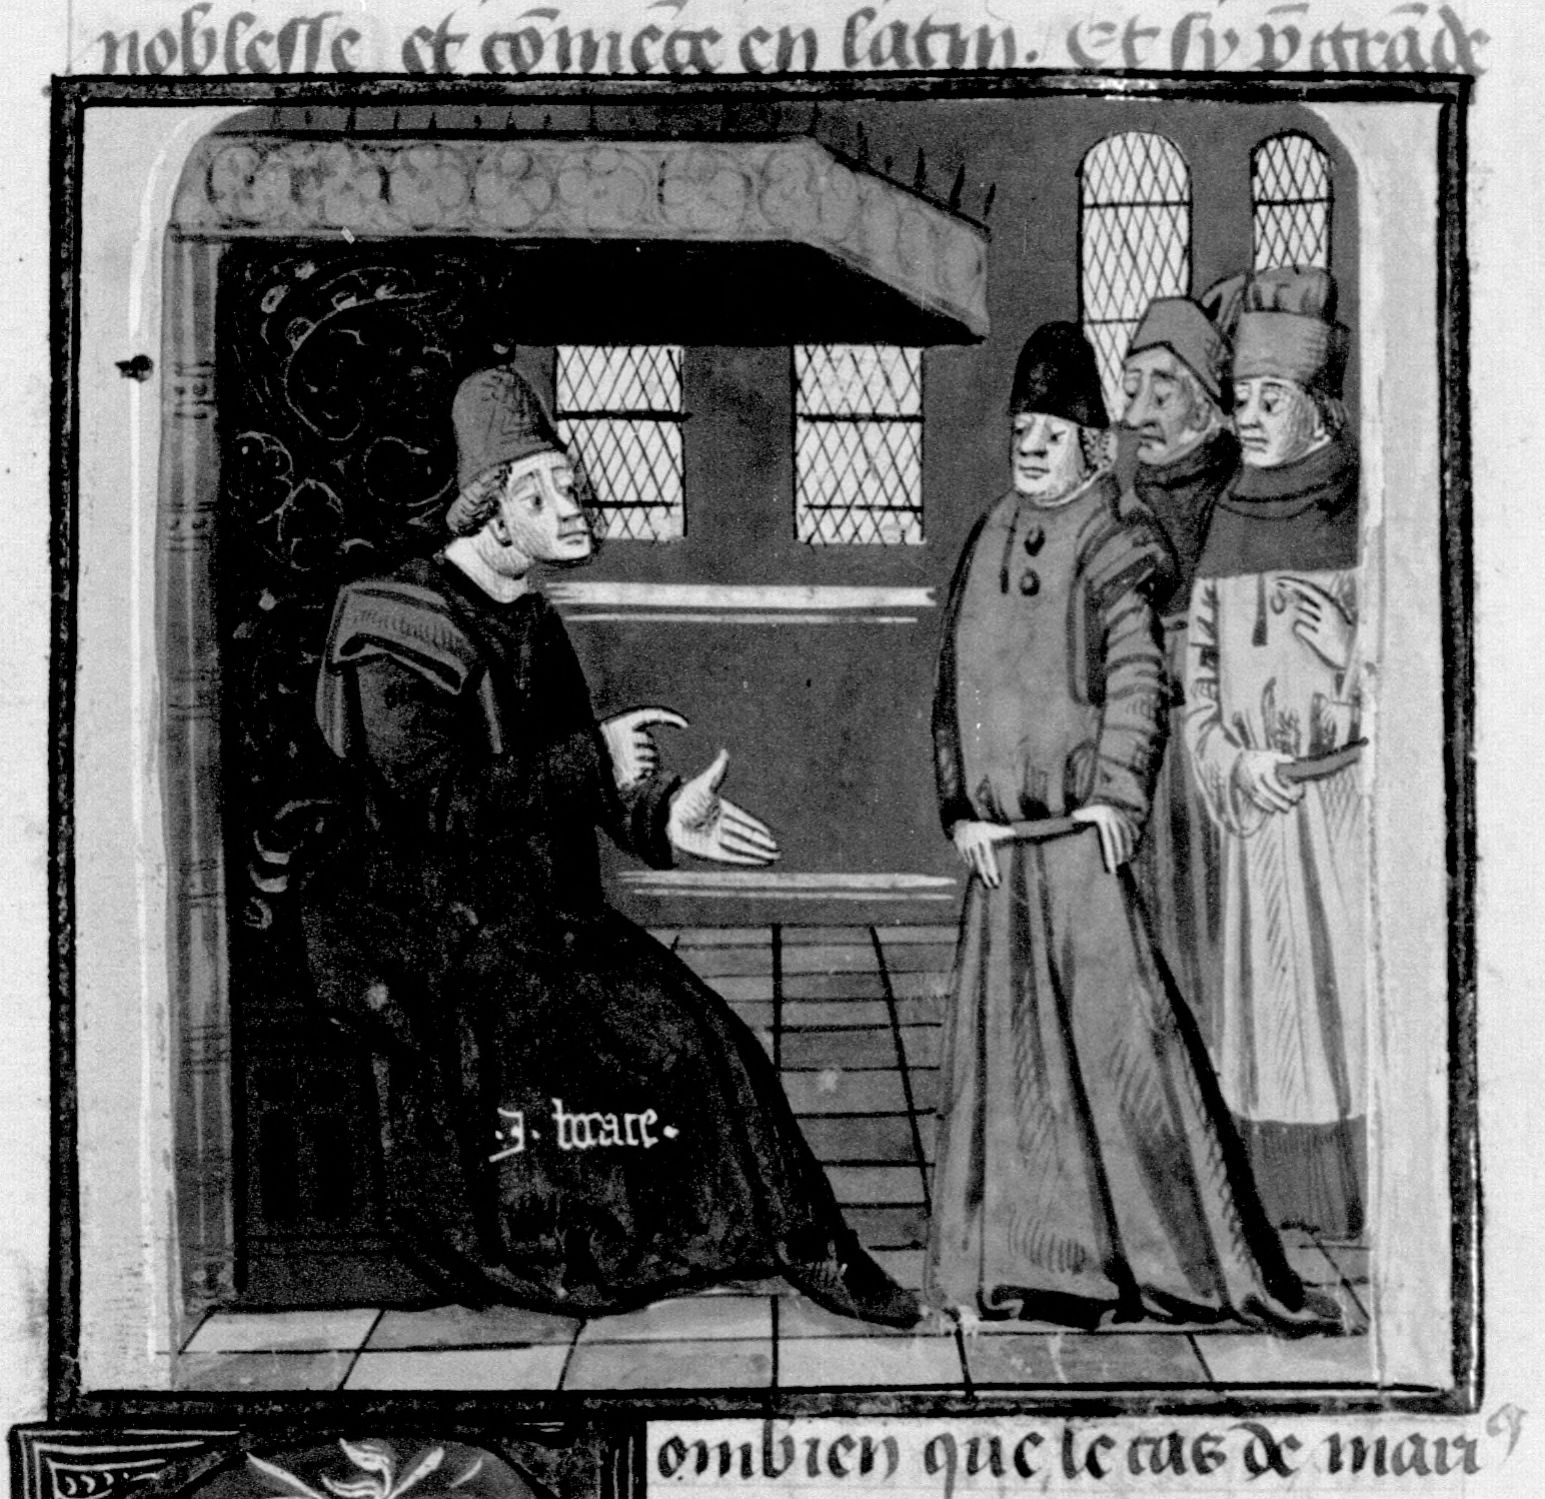 noblesse et cōmēce en latin. Et sy p̄ grāde
.J. bocace.
ombien que le cas de mari⁹